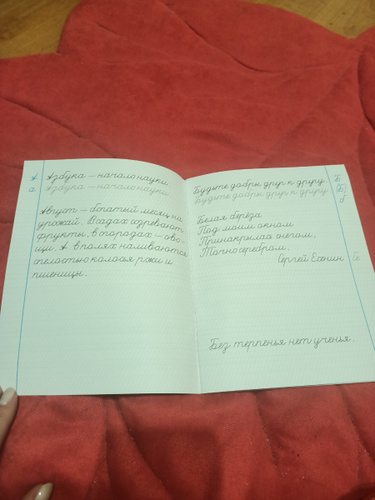 А Азбука – начало науки.
а Азбука – начало науки.
Август – богатый месяц на
урожай. В садах созревают
фрукты, в огородах – ово-
щи. А в полях наливаются
спелостью колосья ржи и
пшеницы.
Будьте добры друг к другу. Б
Будьте добры друг к другу. Б
б
Белая берёза
Под моим окном
Принакрылась снегом,
Точно серебром.
Сергей Есенин Се
Без терпенья нет ученья.